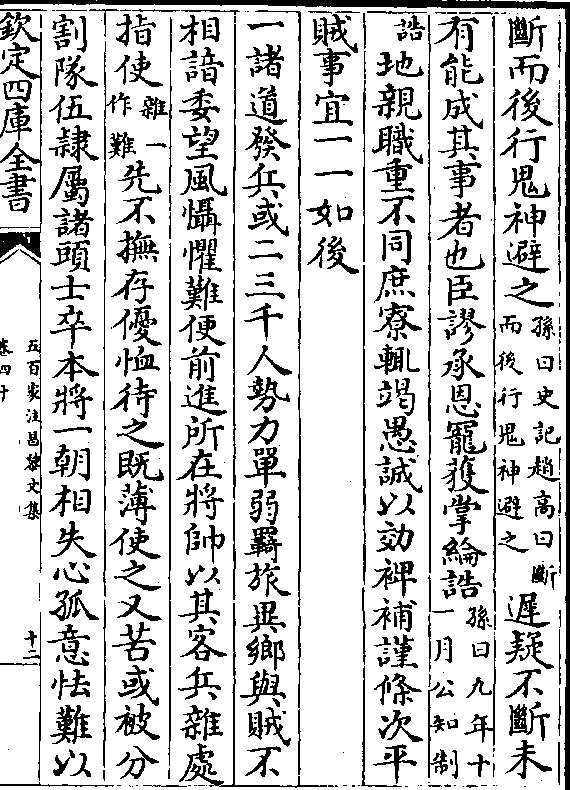 斷而後行鬼神避之孫曰史記趙高曰斷而後行鬼神避之遲疑不斷未
有能成其事者也臣謬承恩寵獲掌綸誥孫曰九年十一月公知制
誥地親職重不同庶寮輒竭愚誠以効裨補謹條次平
賊事宜一一如後
一諸道發兵或二三千人勢力單弱羇旅異鄉與賊不
相諳委望風懾懼難便前進所在將帥以其客兵雜處
指使雜一作難先不撫存優恤待之既薄使之又苦或被分
割隊伍隷屬諸頭士卒本將一朝相失心孤意怯難以
欽定四庫全書
五百家注昌黎文集
卷四十
十二